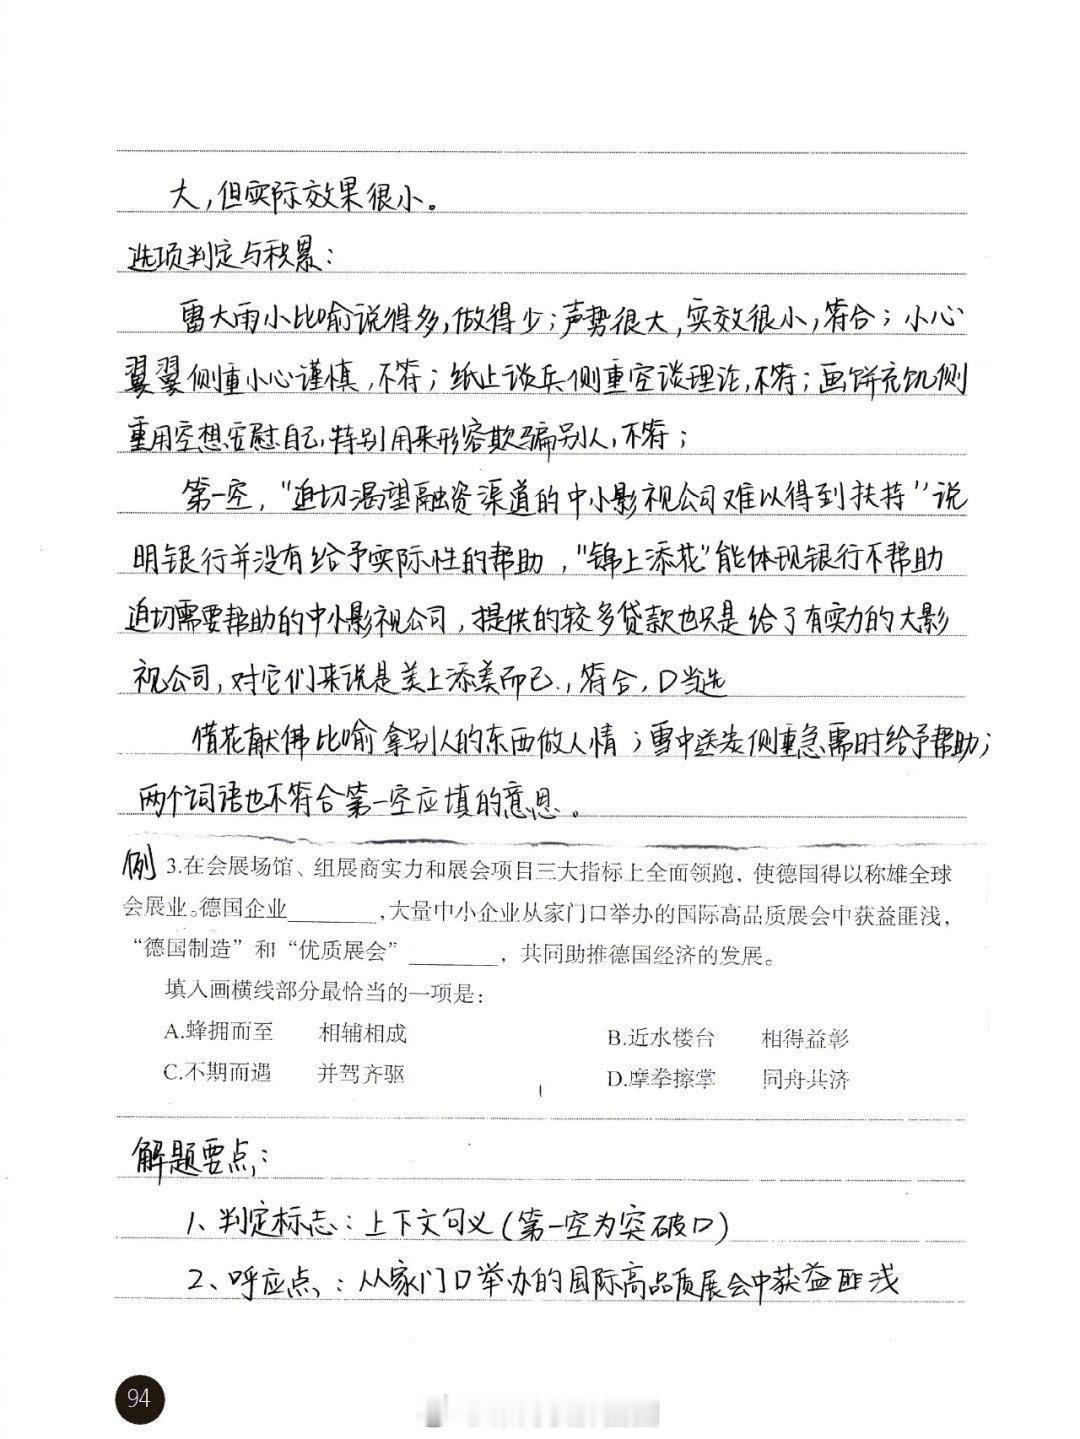 大,但实际效果很小。
选项判定与积累:
雷大雨小比喻说得多,做得少;声势很大,实效很小,符合;小心
翼翼侧重小心谨慎,不符;纸上谈兵侧重空谈理论,不符;画饼充饥侧
重用空想安慰自己,特别用来形容欺骗别人,不符;
第一空,“迫切渴望融资渠道的中小影视公司难以得到扶持”说
明银行并没有给予实际性的帮助,“锦上添花”能体现银行不帮助
迫切需要帮助的中小影视公司,提供的较多贷款也只是给了有实力的大影
视公司,对它们来说是美上添美而已,符合,D当选
借花献佛比喻拿别人的东西做人情;雪中送炭侧重急需时给予帮助;
两个词语也不符合第一空应填的意思。
例 3.在会展场馆、组展商实力和展会项目三大指标上全面领跑,使德国得以称雄全球
会展业。德国企业________,大量中小企业从家门口举办的国际高品质展会中获益匪浅,
“德国制造”和“优质展会”________,共同助推德国经济的发展。
填入画横线部分最恰当的一项是:
A.蜂拥而至 相辅相成 B.近水楼台 相得益彰
C.不期而遇 并驾齐驱 D.摩拳擦掌 同舟共济
解题要点:
1、判定标志:上下文句义(第一空为突破口)
2、呼应点:从家门口举办的国际高品质展会中获益匪浅
94